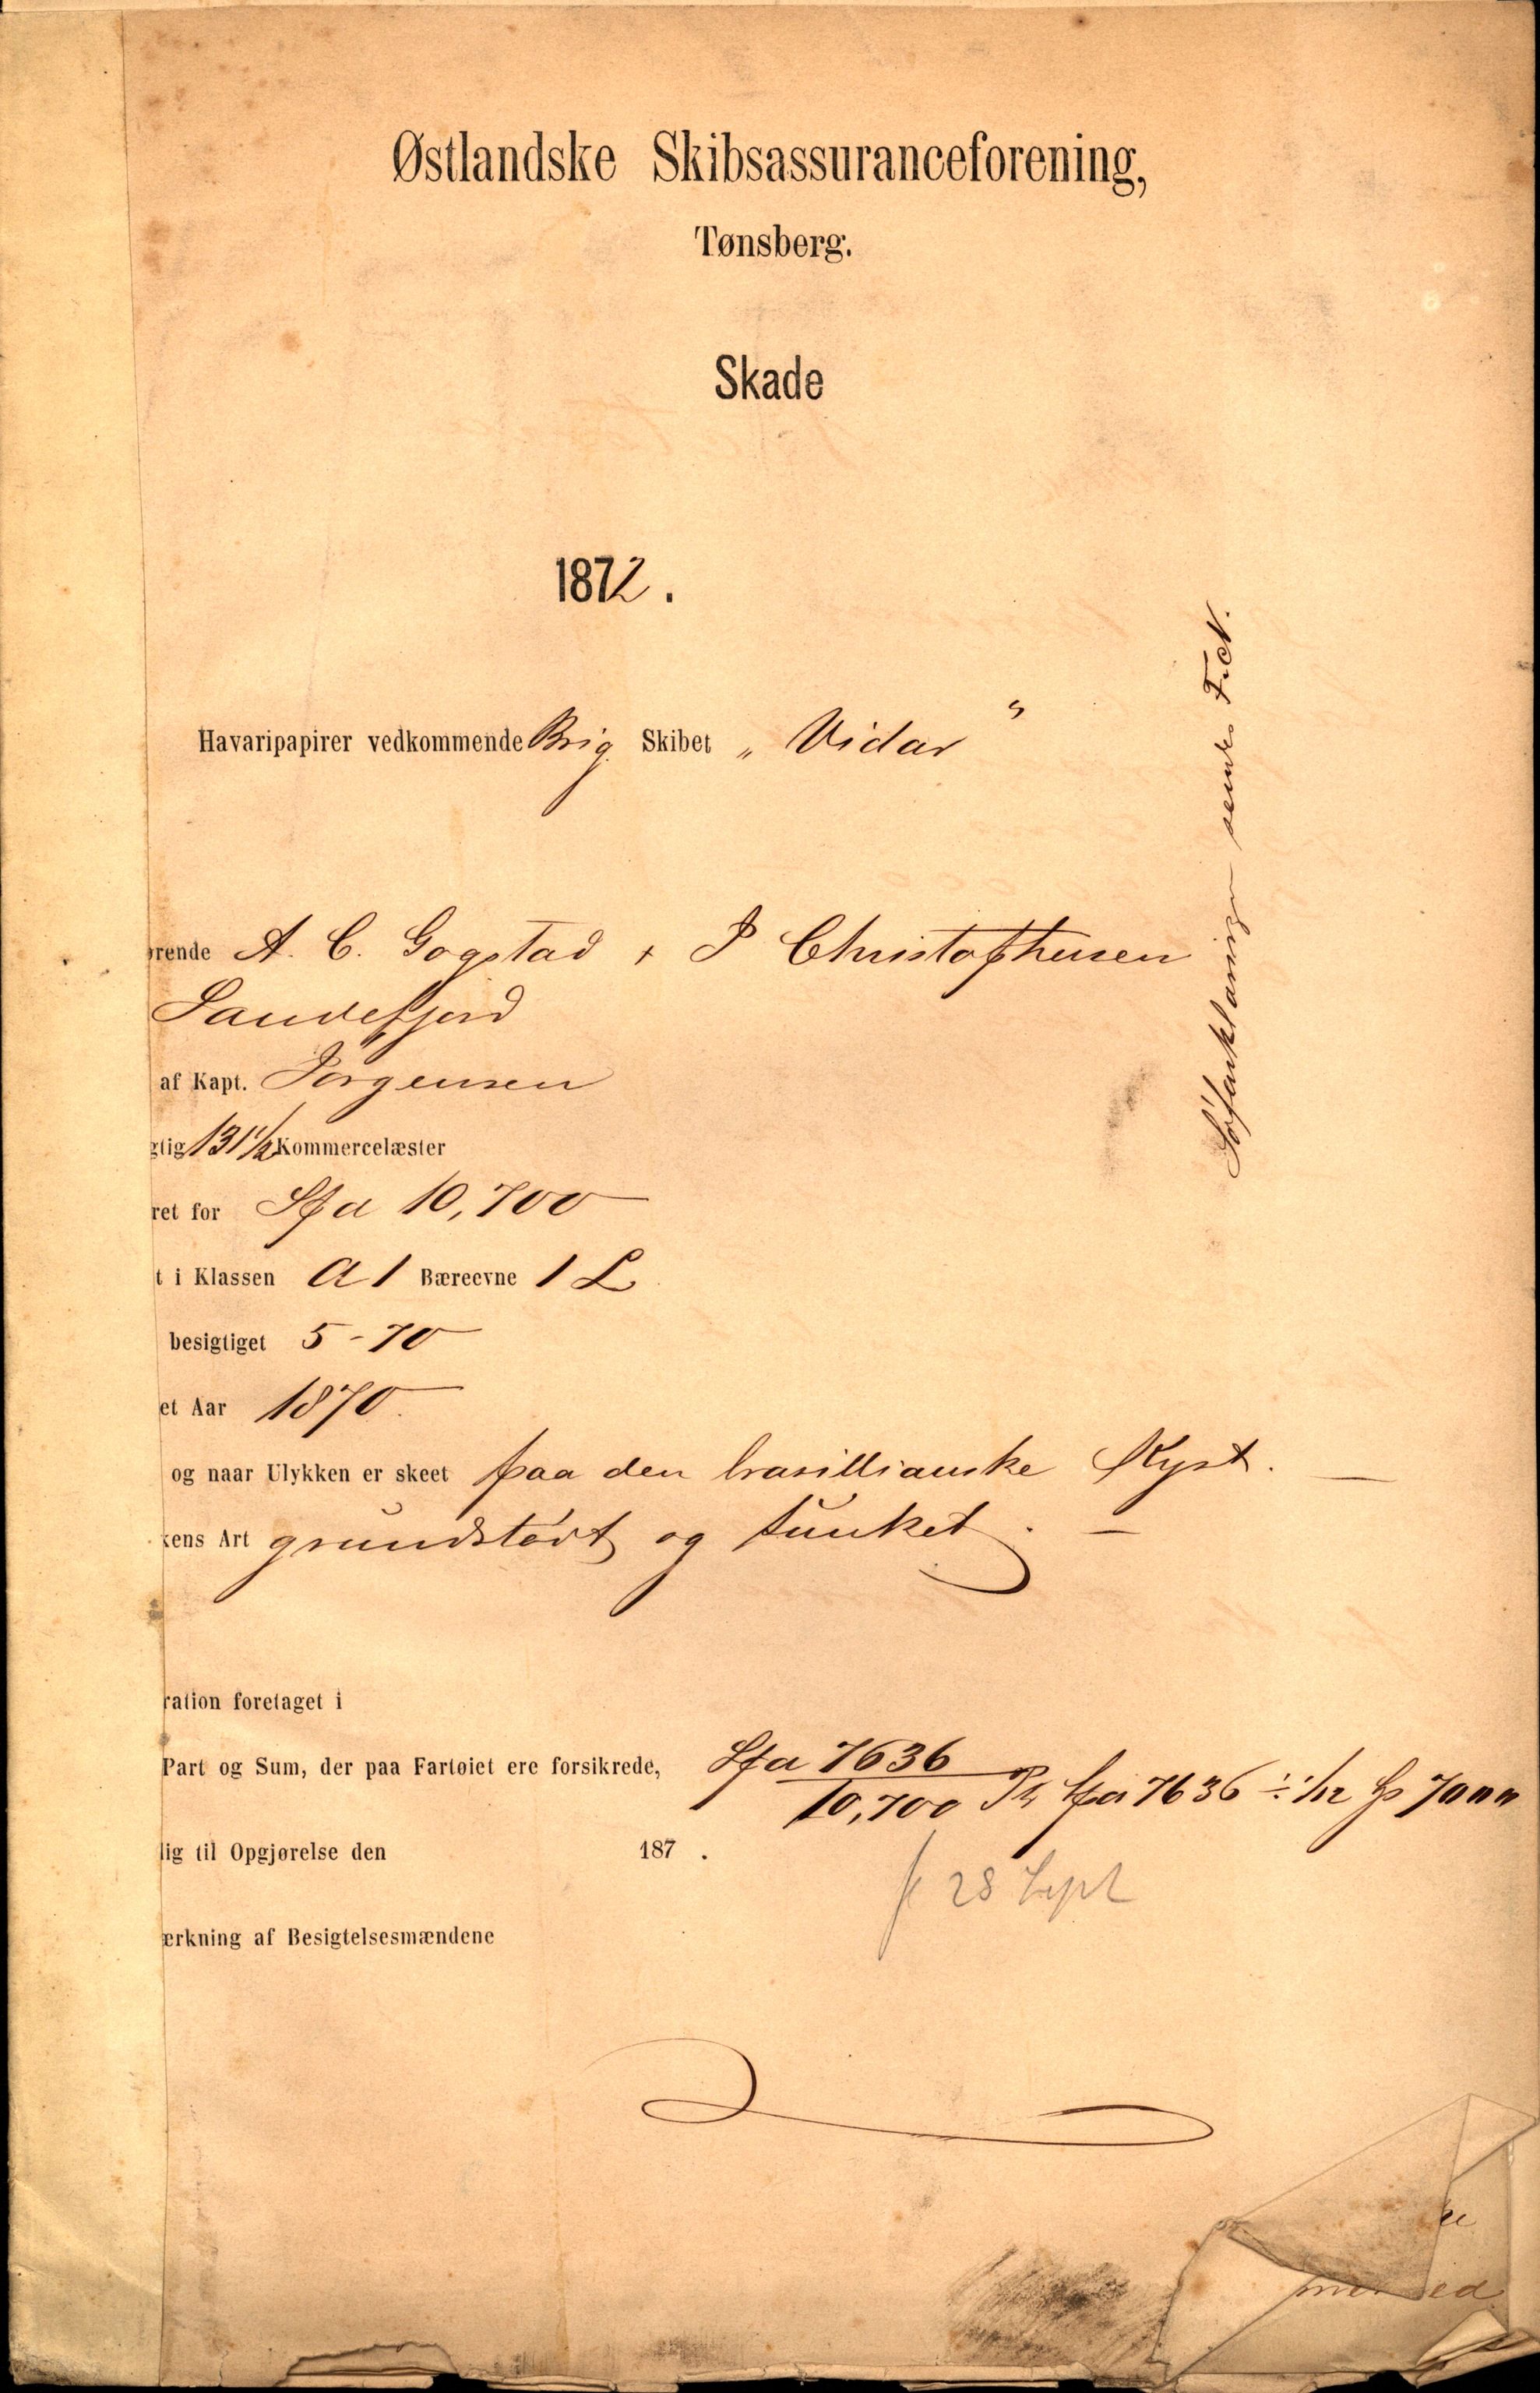 Østlandske Skibsassuranceforening,
Tønsberg.
Skade
1872.
Havaripapirer vedkommende Brig Skibet „ Vidar "
rende A. C. Gogstad + P Christophersen
Sandefjord
af Kapt. Jörgensen
gtig 131 1/2 Kommercelæster
ret for Spd 10,700
t i Klassen A 1 Bæreevne 1 L
besigtiget 5-70
et Aar 1870
og naar Ulykken er skeet paa den brasillianske Kyst. —
kens Art grundstödt og sunket. —
ration foretaget i
Part og Sum, der paa Fartøiet ere forsikrede, Spd 7636
10,700 Spd 7636 ÷ 1/12
lig til Opgjørelse den 187 .
28 Sept
ærkning af Besigtelsesmændene
Söforklaringen sendes F.N.